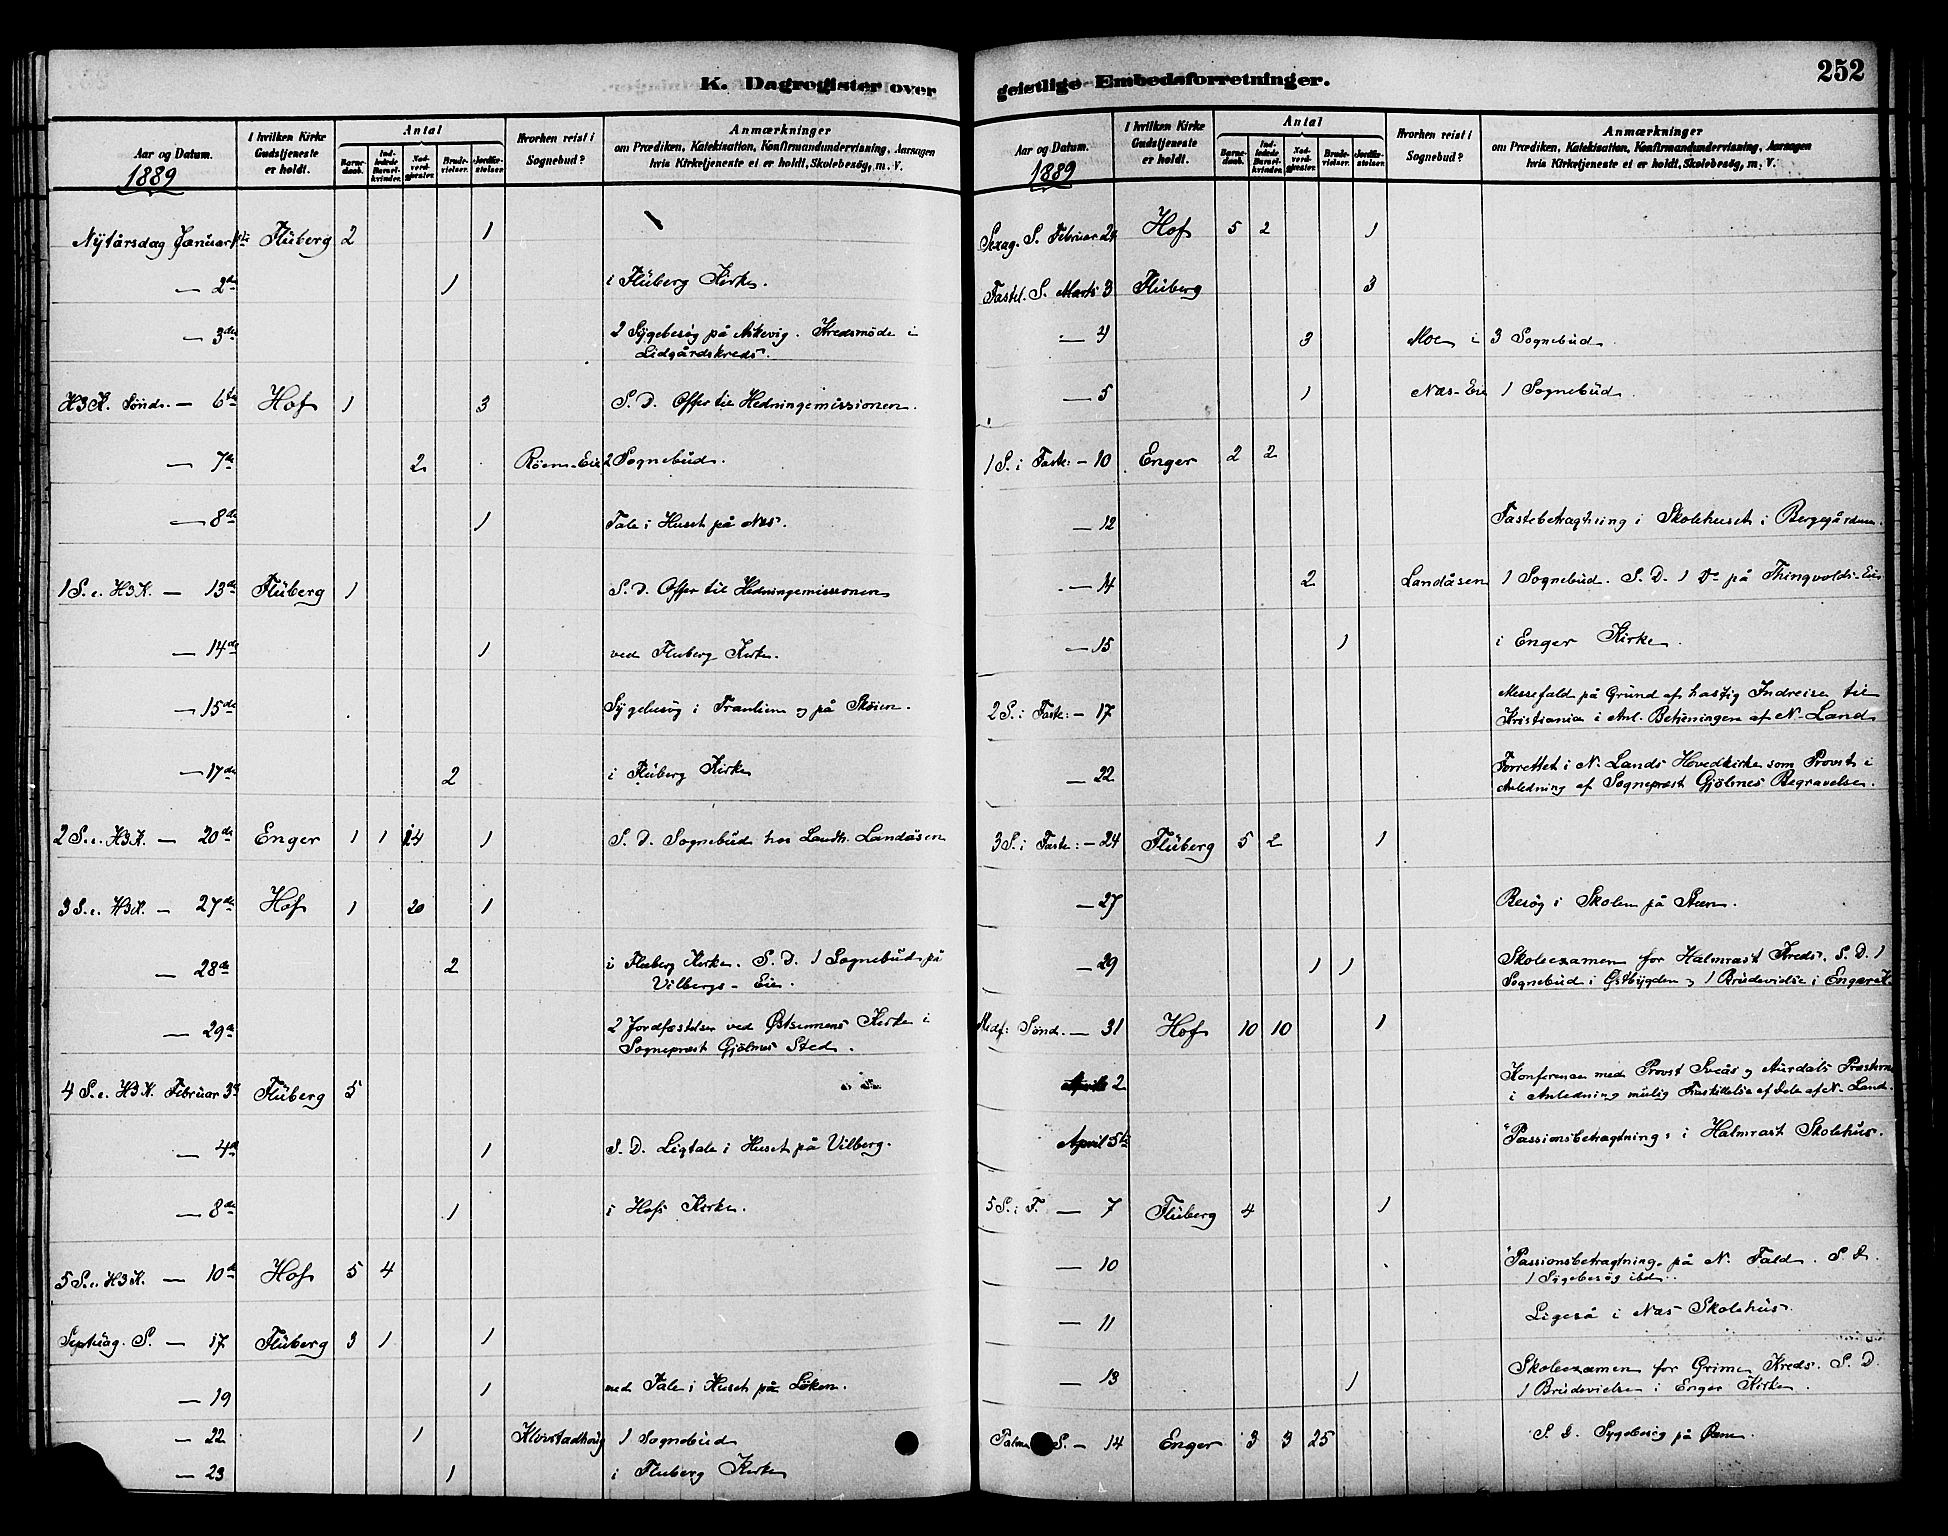 K. Dagregister over
geistlige Embedsforretninger.
252
Aar og Datum.
1889
I hvilken Kirke Gudstjeneste er holdt.
Antal
Barnedaab.
Indledede Barselkvinder.
Nadverdgjester.
Brudevielser.
Jordfæstelser.
Hvorhen reist i Sognebud?
Anmærkninger
om Prædiken, Katekisation, Konfirmandundervisning, Aarsagen
hvis Kirketjeneste et er holdt, Skolebesög, m. V.
Nytårsdag Januar 1ste Fluberg 2 1
— 2de 1 i Fluberg Kirke.
— 3die 2 Sygebesög på Askevig. Kredsmöde i
Lidgårdskreds.
H3K. Sönd. — 6te Hof 1 3 S. D. Offer til Hedningemissionen.
— 7de 2 Röen-Eie 2 Sognebud.
— 8de 1 Tale i Huset på Næs.
1 S. e. H3K. — 13de Fluberg 1 S. D. Offer til Hedningemissionen
— 14de 1 ved Fluberg Kirke.
— 15de Sygebesög i Tranlien og på Sköien.
— 17de 2 i Fluberg Kirke
2 S. e. H3K. — 20de Enger 1 1 24 1 S. D. Sognebud hos Landh. Landåsen
3 S. e. H3K. — 27de Hof 1 20 1
— 28de 2 i Fluberg Kirke. S. D. 1 Sognebud på
Vilbergs-Eie.
— 29de 2 Jordfæstelser ved Østsinnens Kirke i
Sogneprest Gjölmes Sted.
4 S. e. H3K. Februar 3die Fluberg 5
— 4de 1 S. D. Ligtale i Huset på Vilberg.
— 8de 1 i Hofs Kirke.
5 S. e. H3K. — 10de Hof 5 4
Septuag. S. — 17 Fluberg 3 1 1
— 19 1 med Tale i Huset på Löken.
— 22 1 Klovstadhoug 1 Sognebud
— 23 1 i Fluberg Kirke
Aar og Datum.
1889
I hvilken Kirke Gudstjeneste er holdt.
Antal
Barnedaab.
Indledede Barselkvinder.
Nadverdgjester.
Brudevielser.
Jordfæstelser.
Hvorhen reist i Sognebud?
Anmærkninger
om Prædiken, Katekisation, Konfirmandundervisning, Aarsagen
hvis Kirketjeneste et er holdt, Skolebesög, m. V.
Sexag. S. Februar 24 Hof 5 2 1
Fastel. S. Marts 3 Fluberg 3
— 4 3 Moe i 3 Sognebud.
— 5 1 Næs-Eie 1 Sognebud.
1 S. i Faste: — 10 Enger 2 2
— 12 Fastebetragtning i Skolehuset i Bergegården.
— 14 2 Landåsen 1 Sognebud. S. D. 1 Do på Thingvolds-Eie
— 15 1 i Enger Kirke.
2 S. i Faste: — 17 Messefald på Grund af hastig Indreise til
Kristiania i Anl. Betjeningen af N. Land
— 22 Forrettet i N. Lands Hovedkirke som Provst i
Anledning af Sogneprest Gjölmes Begravelse.
3 S. i Faste: — 24 Fluberg 5 2 1
— 27 Besög i Skolen på Steen.
— 29 1 1 Skoleexamen for Halmrast Kreds. S. D. 1
Sognebud i Østbygden og 1 Brudevielse i Enger K.
Midf: Sönd. — 31 Hof 10 10 1
April 2 Konferense med Provst Sveås og Aurdals Præsterne
i Anledning mulig Fraskillelse af Dele af N. Land.
April 5te "Passionsbetragtning" i Halmrast Skolehus.
5 S. i F. — 7 Fluberg 4 1
— 10 "Passionsbetragtning" på N. Fald. S. D.
1 Sygebesög ibd.
— 11 Ligeså i Næs Skolehus.
— 13 1 Skoleexamen for Grime Kreds. S. D.
1 Brudevielse i Enger Kirke.
Palme S. — 14 Enger 3 3 25 S. D. Sygebesög på